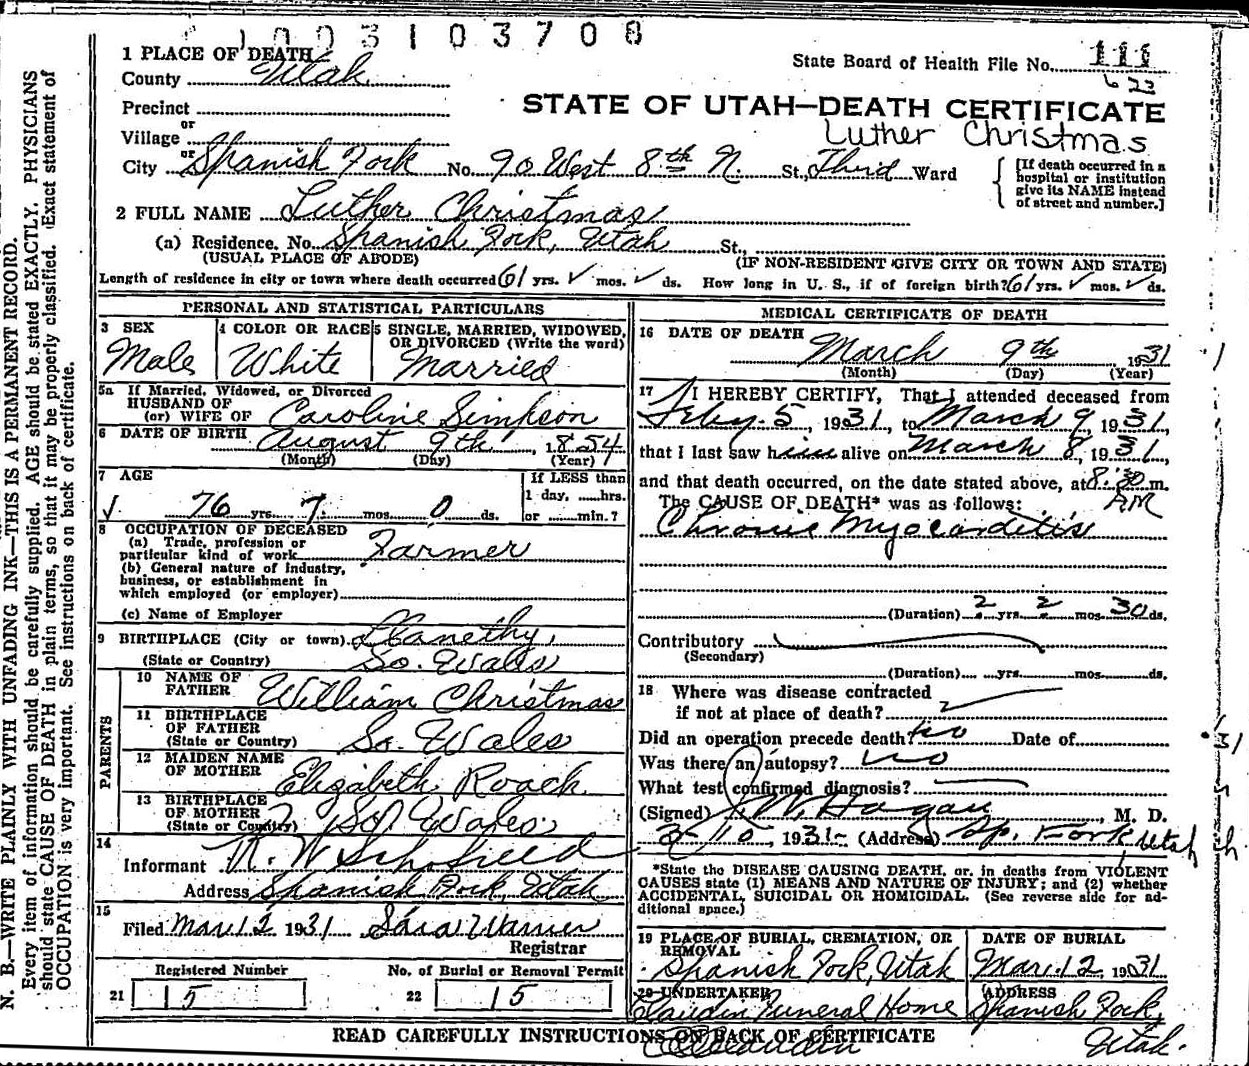 1003103708
1 PLACE OF DEATH
County Utah
State Board of Health File No. 111
623
Precinct
STATE OF UTAH—DEATH CERTIFICATE
or
Village
Luther Christmas
or
City Spanish Fork No. 90 West 8th N. St., Third Ward
[If death occurred in a
hospital or institution
give its NAME instead
of street and number.]
2 FULL NAME Luther Christmas
(a) Residence. No. Spanish Fork, Utah St.,
(USUAL PLACE OF ABODE) (IF NON-RESIDENT GIVE CITY OR TOWN AND STATE)
Length of residence in city or town where death occurred 61 yrs. ✓ mos. ✓ ds. How long in U. S., if of foreign birth? 61 yrs. ✓ mos. ✓ ds.
PERSONAL AND STATISTICAL PARTICULARS
3 SEX
Male
4 COLOR OR RACE
White
5 SINGLE, MARRIED, WIDOWED,
OR DIVORCED (Write the word)
Married
5a If Married, Widowed, or Divorced
HUSBAND OF
(or) WIFE OF Caroline Simpson
6 DATE OF BIRTH August 9th, 1854
(Month) (Day) (Year)
7 AGE
✓ 76 yrs. 7 mos. 0 ds.
If LESS than
1 day, ......hrs.
or .......min.?
8 OCCUPATION OF DECEASED
(a) Trade, profession or
particular kind of work Farmer
(b) General nature of industry,
business, or establishment in
which employed (or employer)
(c) Name of Employer
9 BIRTHPLACE (City or town) Llanethy,
(State or Country) So. Wales
PARENTS
10 NAME OF
FATHER William Christmas
11 BIRTHPLACE
OF FATHER
(State or Country) So. Wales
12 MAIDEN NAME
OF MOTHER Elizabeth Roach
13 BIRTHPLACE
OF MOTHER
(State or Country) So. Wales
14
Informant R. W. Schofield
Address Spanish Fork, Utah
15
Filed Mar. 12 1931 Sara Warner
Registrar
Registered Number
21 15
No. of Burial or Removal Permit
22 15
MEDICAL CERTIFICATE OF DEATH
16 DATE OF DEATH
March 9th 1931
(Month) (Day) (Year)
17 I HEREBY CERTIFY, That I attended deceased from
Feby. 5, 1931, to March 9, 1931,
that I last saw him alive on March 8, 1931,
and that death occurred, on the date stated above, at 8:30 m.
AM
The CAUSE OF DEATH* was as follows:
Chronic Myocarditis
(Duration) 2 yrs. 2 mos. 30 ds.
Contributory
(Secondary)
(Duration) yrs. mos. ds.
18 Where was disease contracted
if not at place of death?
Did an operation precede death? no Date of
Was there an autopsy? no
What test confirmed diagnosis?
(Signed) J. W. Hagan, M. D.
3-10, 1931- (Address) Sp. Fork, Utah
*State the DISEASE CAUSING DEATH, or, in deaths from VIOLENT
CAUSES state (1) MEANS AND NATURE OF INJURY; and (2) whether
ACCIDENTAL, SUICIDAL OR HOMICIDAL. (See reverse side for ad-
ditional space.)
19 PLACE OF BURIAL, CREMATION, OR
REMOVAL
Spanish Fork, Utah
DATE OF BURIAL
Mar. 12, 1931
20 UNDERTAKER
Claudin Funeral Home
ADDRESS
Spanish Fork,
Utah.
READ CAREFULLY INSTRUCTIONS ON BACK OF CERTIFICATE
N. B.—WRITE PLAINLY WITH UNFADING INK—THIS IS A PERMANENT RECORD.
Every item of information should be carefully supplied. AGE should be stated EXACTLY. PHYSICIANS
should state CAUSE OF DEATH in plain terms, so that it may be properly classified. Exact statement of
OCCUPATION is very important. See instructions on back of certificate.